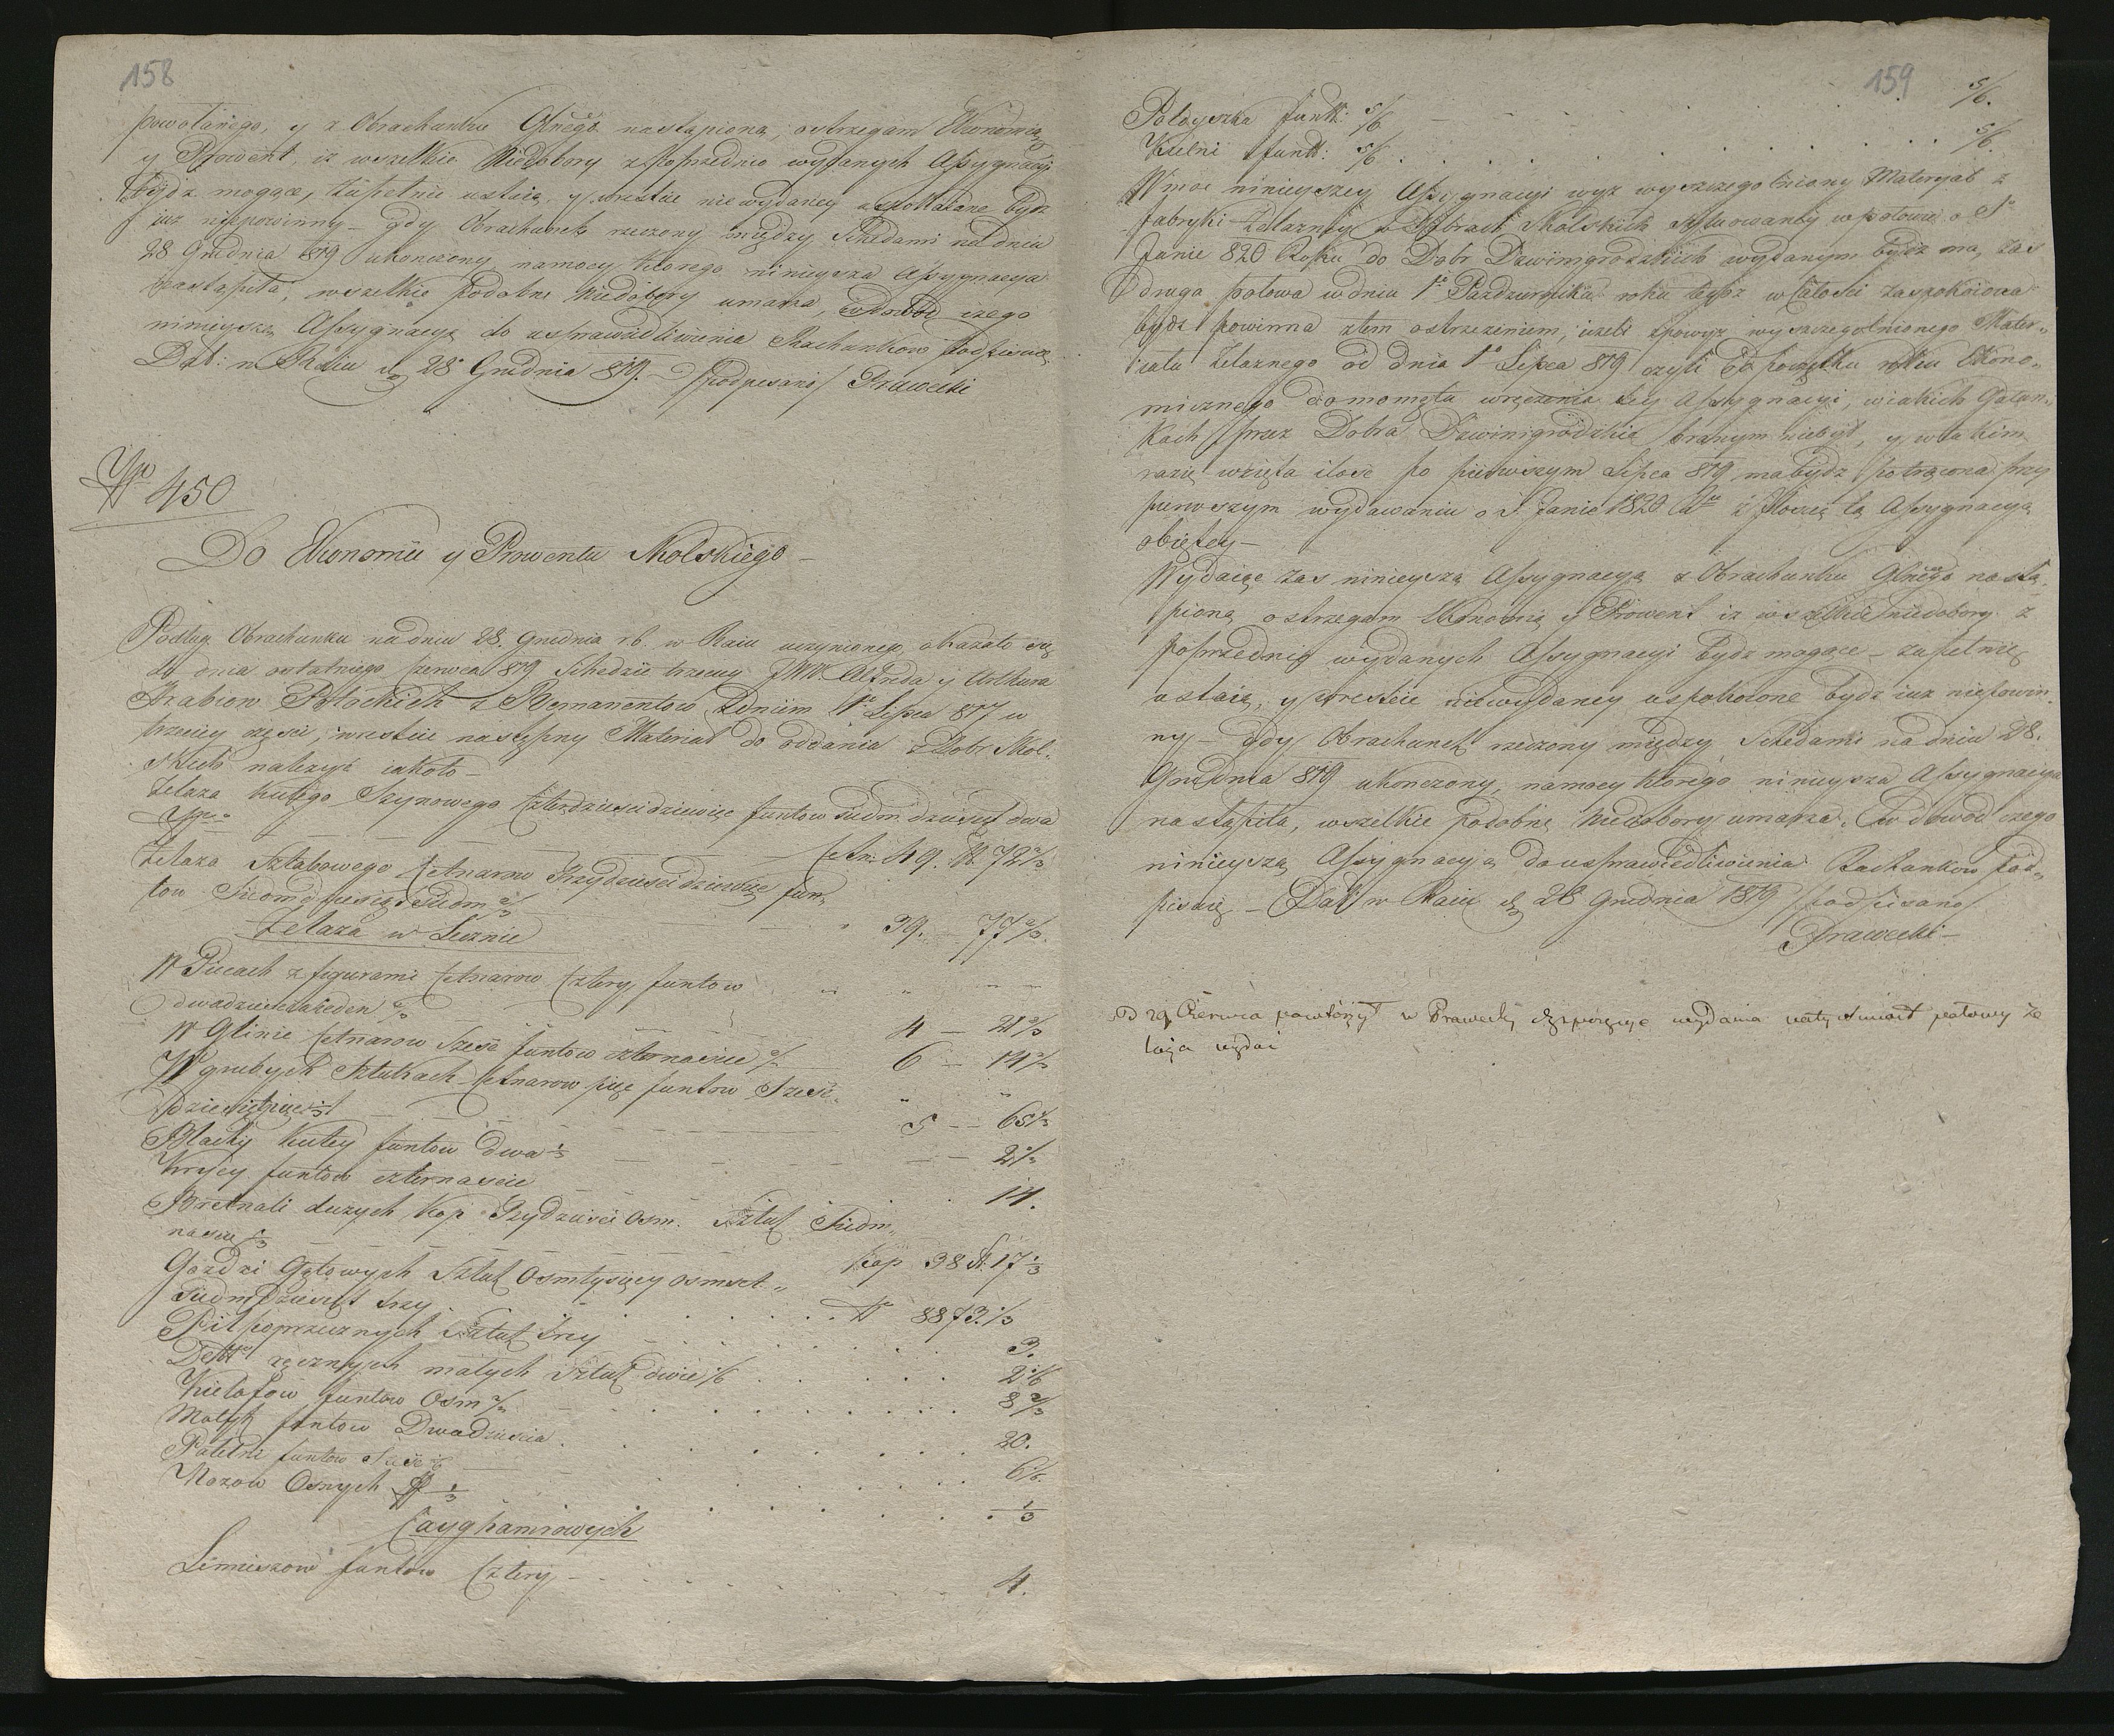 158
powołanego, y z Obrachunku Glnego nastąpioną, ostrzegam Ekonomią
y Prowent, iż wszelkie Niedobory z poprzednio wydanych Assygnacyi
bydz mogące, zupełnie ustaią, y wreście niewydaney uspokaiane bydz
iuz niepowinny – gdy Obrachunek rzeczony między Schedami na dniu
28 Grudnia 819 ukończony namocy ktorego ninieysza Assygnacya
nastąpiła, wszelkie podobne Niedobory umarza, w dowod czego
ninieyszą Assygnacyę do usprawiedliwienia Rachunkow podpisuię
Dat: w Raiu d 28 Grudnia 819. – /podpisano/ Prawecki
Nro 450
Do Ekonomii y Prowentu Skolskiego –
Podług Obrachunku na dniu 28. Grudnia r b. w Raiu uczynionego, okazało się
do dnia ostatniego Czerwca 819 Schedzie trzeciey JWW. Alfreda y Arthura
Hrabiow Potockich z Remanentow z dniem 1o Lipca 817 w
trzeciey części, wreście następny Materiał do oddania z Dobr Skol-
skich należyć iakoto –
Zelaza kutego Szynowego Czterdzieści dziewięć funtow siedmdziesiąt dwa
Cetn: 49. tt. 72 2/3
Zelaza Sztabowego Cetnarow Trzydzieści dziewięć fun,,
tow Siedmdziesiąt siedm 2/3 39. – 77 2/3.
Zelaza w Leznie
W Piecach z figurami Cetnarow Cztery funtow
dwadzieścia ieden 2/3 4 – 21 2/3
W Glinie Cetnarow Sześć funtow czternaście 2/3 6 – 14 2/3
W grubych Sztukach Cetnarow pięć funtow Sześć-
dziesiątpięć 1/3 5 – 65 1/3
Blachy kutey funtow dwa 1/3 2 1/3
Krycy funtow czternaście 14.
Bretnali duzych Kop Trzydzieści Osm. Sztuk Siedm,,
naście 1/3 Kop 38 St. 17 1/3
Gozdzi Gątowych Sztuk Osmtysięcy osmset,,
siedmdziesiąt trzy Nro 8873. 1/3
Pił poprzecznych Sztuk trzy 3.
Detto ręcznych małych Sztuk dwie 1/6 2 1/6
Kielofow funtow Osm 2/3 8 2/3
Motyk funtow Dwadzieścia 20.
Patelni funtow Sześć 1/6 6 1/6.
Nozow Osnych tt 1/3 1/3
Cayghamrowych
Lemieszow funtow Cztery – 4.
159
Połdyszka funtt: 5/6 5/6.
Kielni funtt: 5/6 5/6.
W moc ninieyszey Assygnacyi wyz wyszczegolniony Materyał z
fabryki Zelazney w Dobrach Skolskich sytuowaney w połowie o So
Janie 820 Roku do Dobr Dzwinigrodzkich wydanym bydz ma, zas
druga połowa w dniu 1o Pazdziernika roku tegoz w Całości zaspokoiona
bydz powinna z tem ostrzezeniem, iezeli z powyz wyszczegolnionego Mater,,
iału Zelaznego od dnia 1o Lipca 819 czyli od początku roku Ekono,,
micznego do momętu wręczenia tey Assygnacyi, w iakich Gatun,,
kach przez Dobra Dzwinigrodzkie branym niebył, y w takim
razie wzięta ilość po pierwszym Lipca 819 ma bydz potrącona przy
pierwszym wydawaniu o S. Janie 1820 z Ilości tą Assygnacyą
obiętey –
Wydaiąc zas ninieyszą Assygnacyą z Obrachunku Glnego nastą,
pioną ostrzegam Ekonomią y Prowent iz wszelkie niedobory z
poprzednio wydanych Assygnacyi bydz mogące – zupełnie
ustaią, y wreście niewydaney uspokoione bydz iuz niepowin,
ny – gdy Obrachunek rzeczony między Schedami na dniu 28.
Grudnia 819 ukończony, namocy ktorego ninieysza Assygnacya
nastąpiła, wszelkie podobne Niedobory umarza. w dowod czego
ninieyszą Assygnacyą do usprawiedliwienia Rachunkow pod,,
pisuię – Dat w Raiu d 28 Grudnia 1819 /podpisano/
Prawecki –
D 29 Czerwca powtorzył w Prawecky wydania natychmiast połowy że
laza wydac